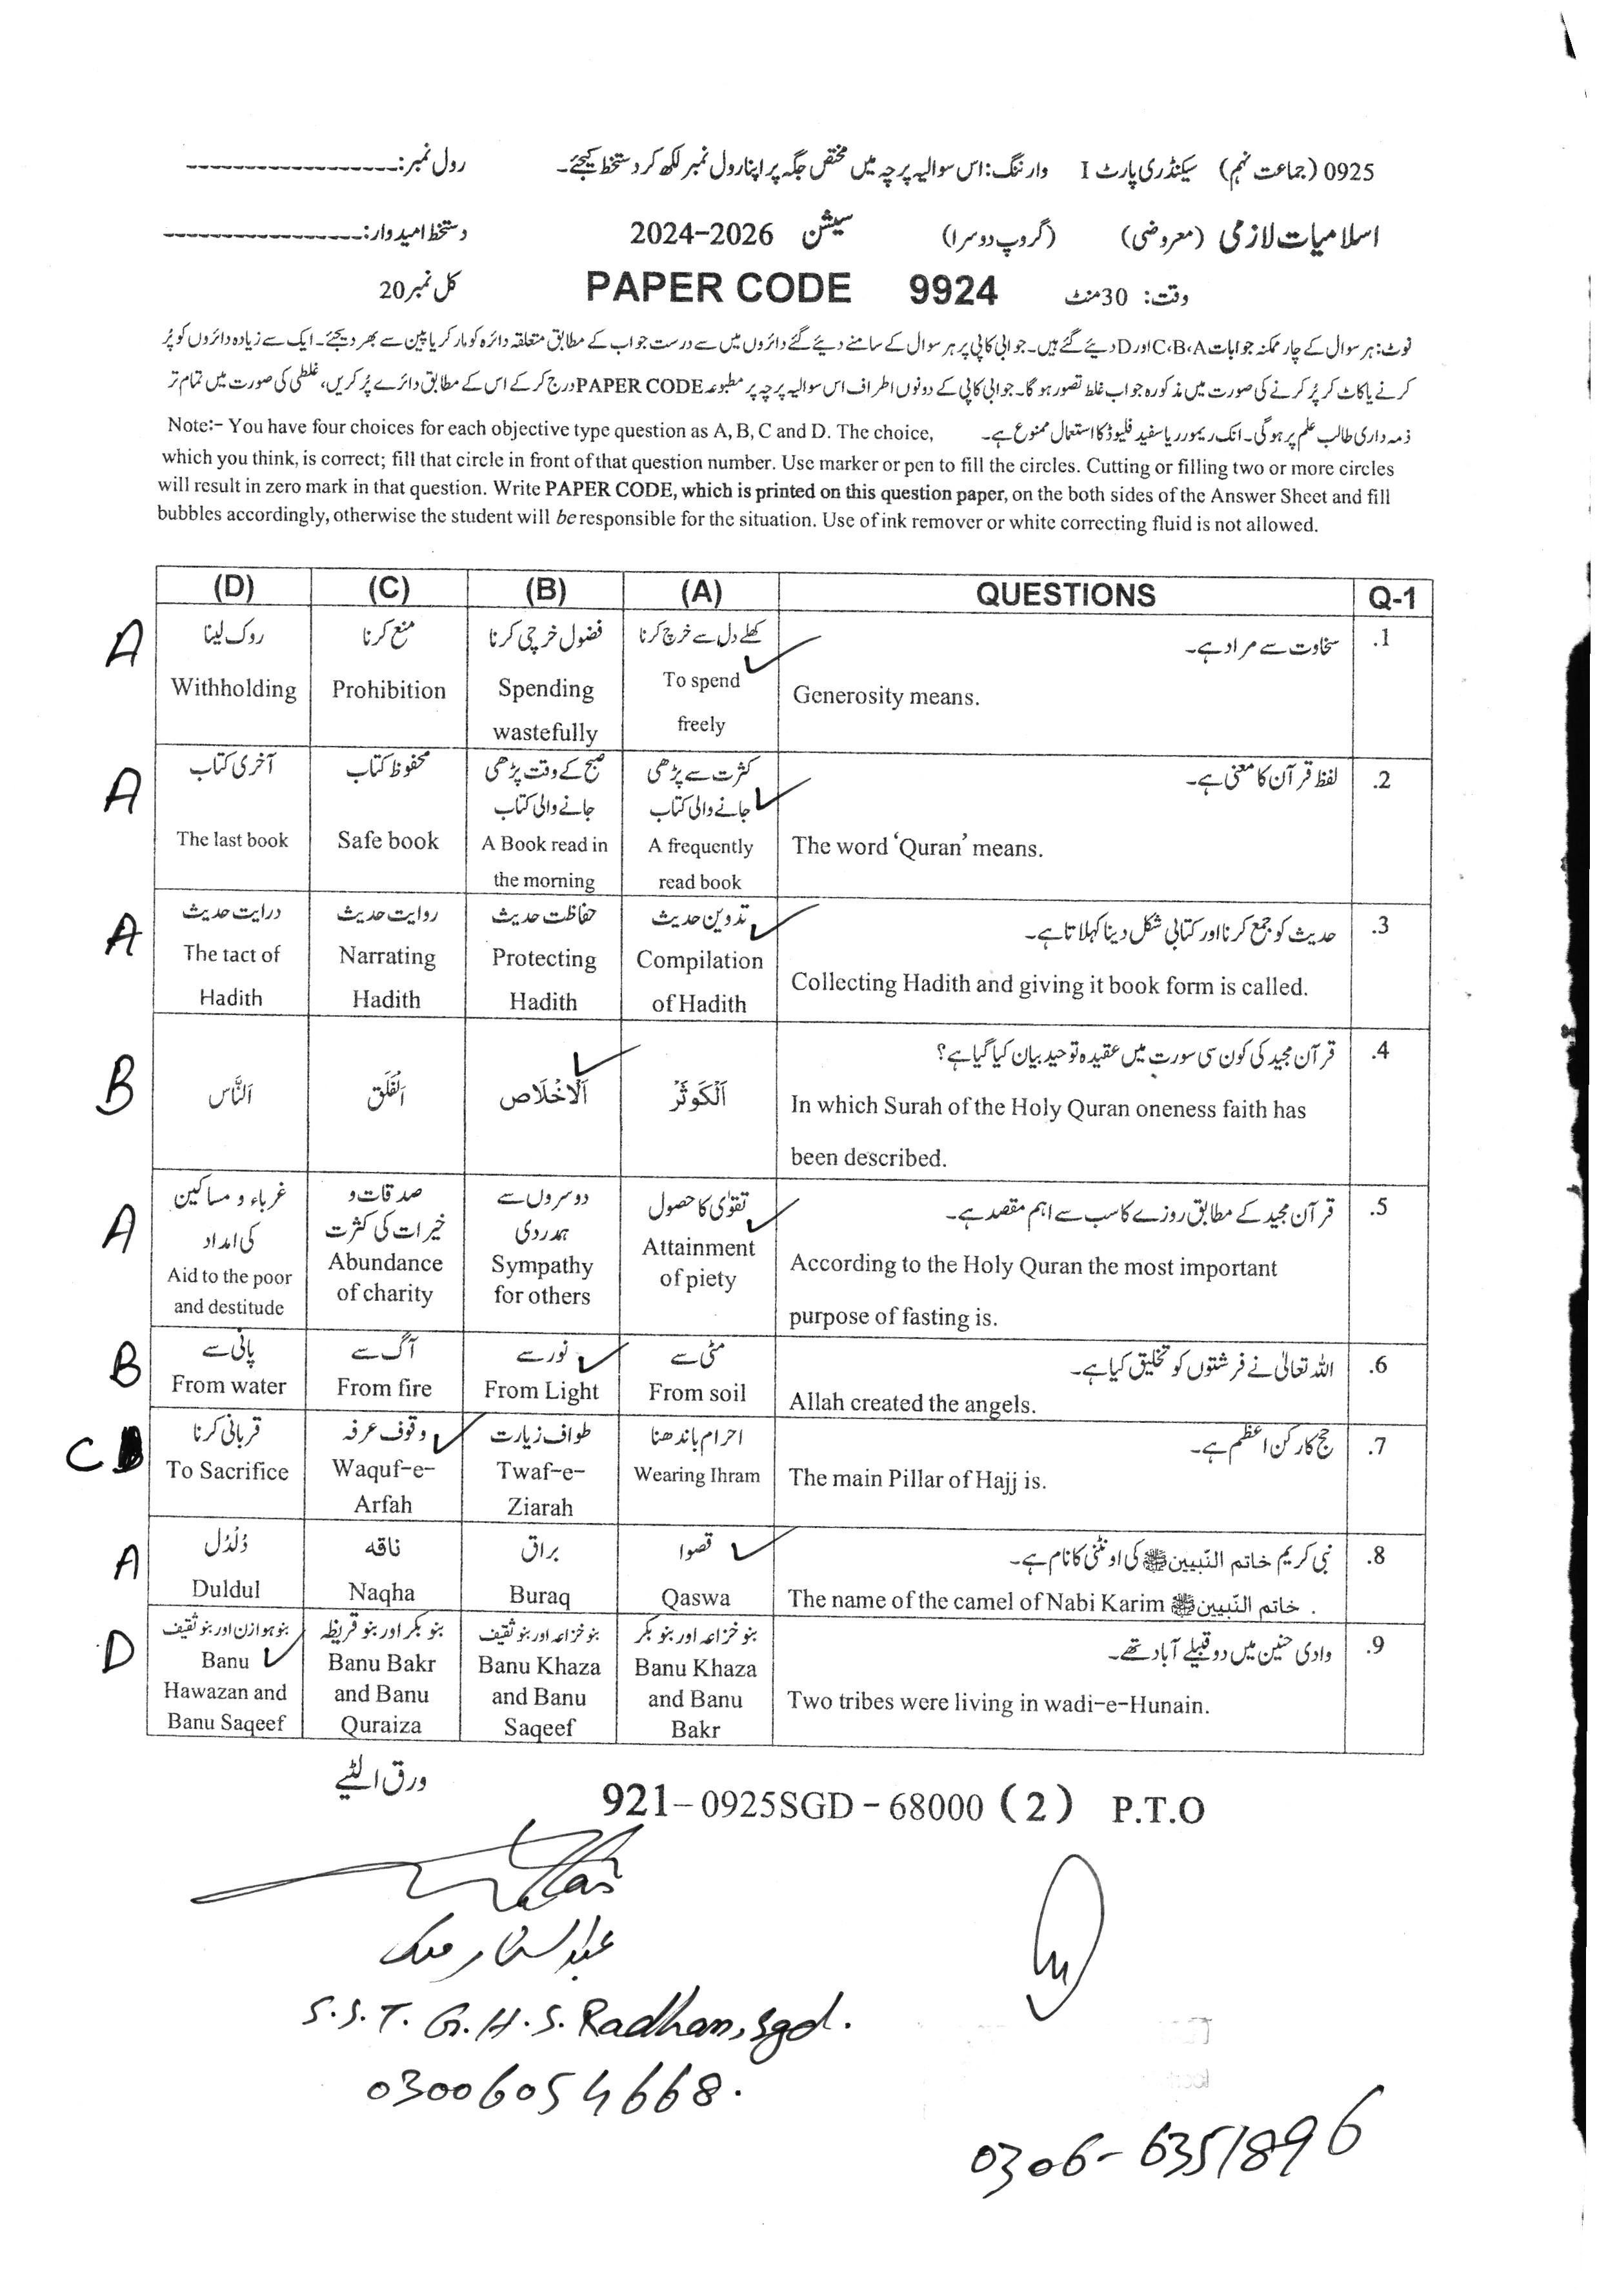 0925 (جماعت نہم) سیکنڈری پارٹ I وارننگ: اس سوالیہ پرچہ میں مختص جگہ پر اپنا رول نمبر لکھ کر دستخط کیجئے۔ رول نمبر:
اسلامیات لازمی (معروضی) (گروپ دوسرا) سیشن 2024-2026 دستخط امیدوار:
وقت: 30 منٹ PAPER CODE 9924 کل نمبر 20
نوٹ: ہر سوال کے چار ممکنہ جوابات C،B،A اور D دیئے گئے ہیں۔ جوابی کاپی پر ہر سوال کے سامنے دیئے گئے دائروں میں سے درست جواب کے مطابق متعلقہ دائرہ کو مارکر یا پین سے بھر دیجئے۔ ایک سے زیادہ دائروں کو پُر
کرنے یا کاٹ کر پُر کرنے کی صورت میں مذکورہ جواب غلط تصور ہو گا۔ جوابی کاپی کے دونوں اطراف اس سوالیہ پرچہ پر مطبوعہ PAPER CODE درج کر کے اس کے مطابق دائرے پُر کریں، غلطی کی صورت میں تمام تر
ذمہ داری طالب علم پر ہو گی۔ انک ریموور یا سفید فلیوڈ کا استعمال ممنوع ہے۔
Note:- You have four choices for each objective type question as A, B, C and D. The choice,
which you think, is correct; fill that circle in front of that question number. Use marker or pen to fill the circles. Cutting or filling two or more circles
will result in zero mark in that question. Write PAPER CODE, which is printed on this question paper, on the both sides of the Answer Sheet and fill
bubbles accordingly, otherwise the student will be responsible for the situation. Use of ink remover or white correcting fluid is not allowed.
(D) (C) (B) (A) QUESTIONS Q-1
.1 سخاوت سے مراد ہے۔
Generosity means.
کھلے دل سے خرچ کرنا
To spend
freely
فضول خرچی کرنا
Spending
wastefully
منع کرنا
Prohibition
روک لینا
Withholding
A
.2 لفظ قرآن کا معنی ہے۔
The word ‘Quran’ means.
کثرت سے پڑھی
جانے والی کتاب
A frequently
read book
صبح کے وقت پڑھی
جانے والی کتاب
A Book read in
the morning
محفوظ کتاب
Safe book
آخری کتاب
The last book
A
.3 حدیث کو جمع کرنا اور کتابی شکل دینا کہلاتا ہے۔
Collecting Hadith and giving it book form is called.
تدوین حدیث
Compilation
of Hadith
حفاظت حدیث
Protecting
Hadith
روایت حدیث
Narrating
Hadith
درایت حدیث
The tact of
Hadith
A
.4 قرآن مجید کی کون سی سورت میں عقیدہ توحید بیان کیا گیا ہے؟
In which Surah of the Holy Quran oneness faith has
been described.
اَلْکَوثَرْ
اَلْاخْلَاص
اَلْفَلَق
اَلنَّاس
B
.5 قرآن مجید کے مطابق روزے کا سب سے اہم مقصد ہے۔
According to the Holy Quran the most important
purpose of fasting is.
تقوٰی کا حصول
Attainment
of piety
دوسروں سے
ہمدردی
Sympathy
for others
صدقات و
خیرات کی کثرت
Abundance
of charity
غرباء و مساکین
کی امداد
Aid to the poor
and destitude
A
.6 اللہ تعالیٰ نے فرشتوں کو تخلیق کیا ہے۔
Allah created the angels.
مٹی سے
From soil
نور سے
From Light
آگ سے
From fire
پانی سے
From water
B
.7 حج کا رکن اعظم ہے۔
The main Pillar of Hajj is.
احرام باندھنا
Wearing Ihram
طواف زیارت
Twaf-e-
Ziarah
وقوف عرفہ
Waquf-e-
Arfah
قربانی کرنا
To Sacrifice
C
.8 نبی کریم خاتم النّبیین ﷺ کی اونٹنی کا نام ہے۔
The name of the camel of Nabi Karim خاتم النّبیین ﷺ .
قصوا
Qaswa
براق
Buraq
ناقہ
Naqha
دُلدُل
Duldul
A
.9 وادی حنین میں دو قبیلے آباد تھے۔
Two tribes were living in wadi-e-Hunain.
بنو خزاعہ اور بنو بکر
Banu Khaza
and Banu
Bakr
بنو خزاعہ اور بنو ثقیف
Banu Khaza
and Banu
Saqeef
بنو بکر اور بنو قریظہ
Banu Bakr
and Banu
Quraiza
بنو ہوازن اور بنو ثقیف
Banu
Hawazan and
Banu Saqeef
D
ورق الٹیے
921-0925SGD-68000 (2) P.T.O
عبدالستار ملک
S.S.T. G.H.S. Radhan, sgd.
03006054668.
0306-6351896